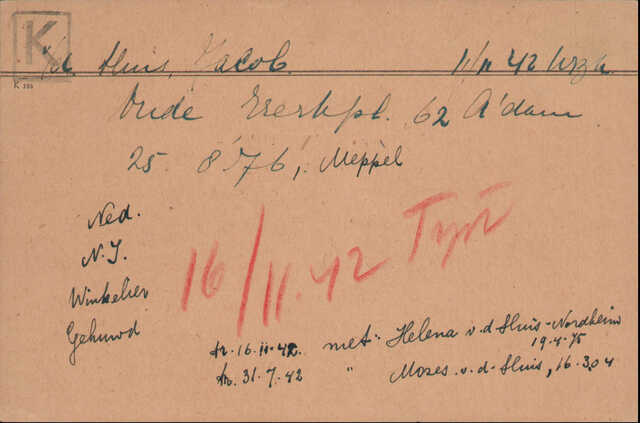 K
v/d. Sluis, Jacob. 11/11 42 Wrzh.
K 286
Oude Yserkpl. 62 A'dam
25 8'76, Meppel
Ned.
N.I.
Winkelier
Gehuwd
16/11.42 Typ
tr. 16.11.42. met Helena v.d. Sluis-Nordheim
19.4.75
tr. 31.7.42 " Mozes v.d. Sluis, 16.3.04